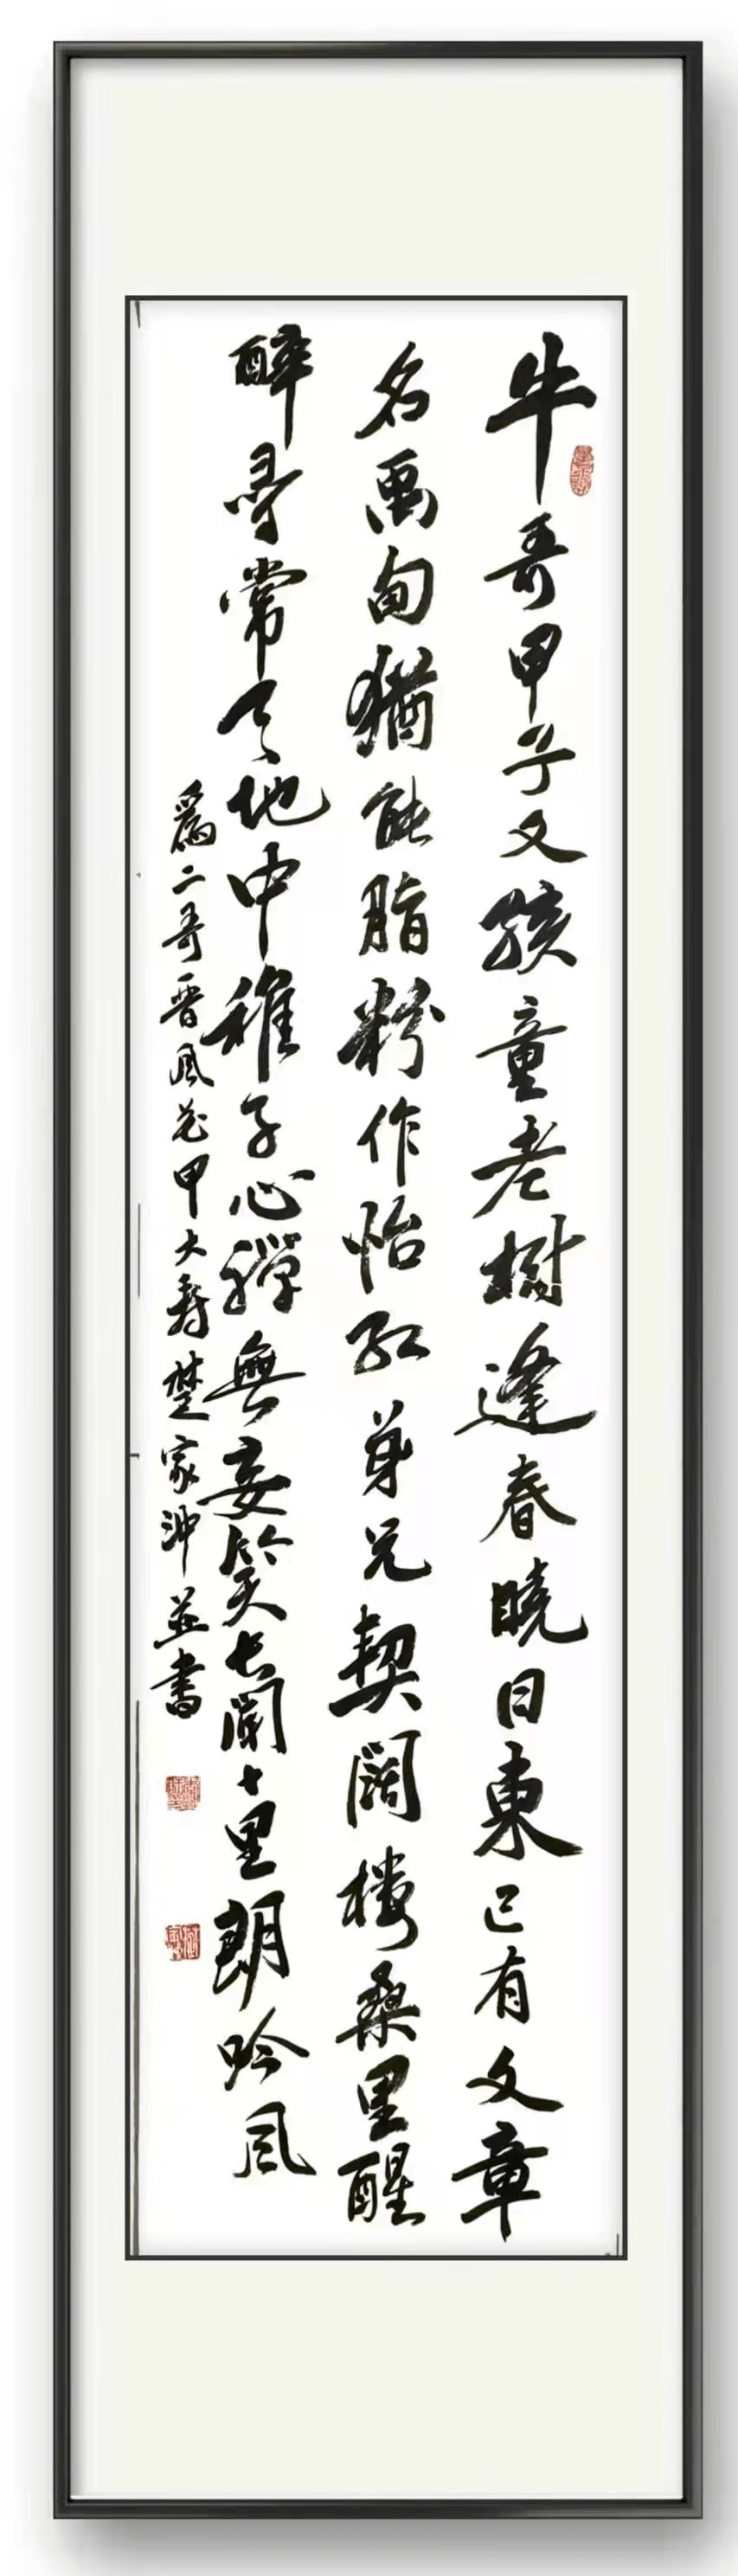 牛哥甲子又孩童老樹逢春曉日東已有文章
名禹甸猶能脂粉作怡紅弟兄契闊樓桑里醒
醉尋常天地中稚子心禪無妄笑七闻十里朗吟風
爲二哥晋風花甲大壽楚家冲並書